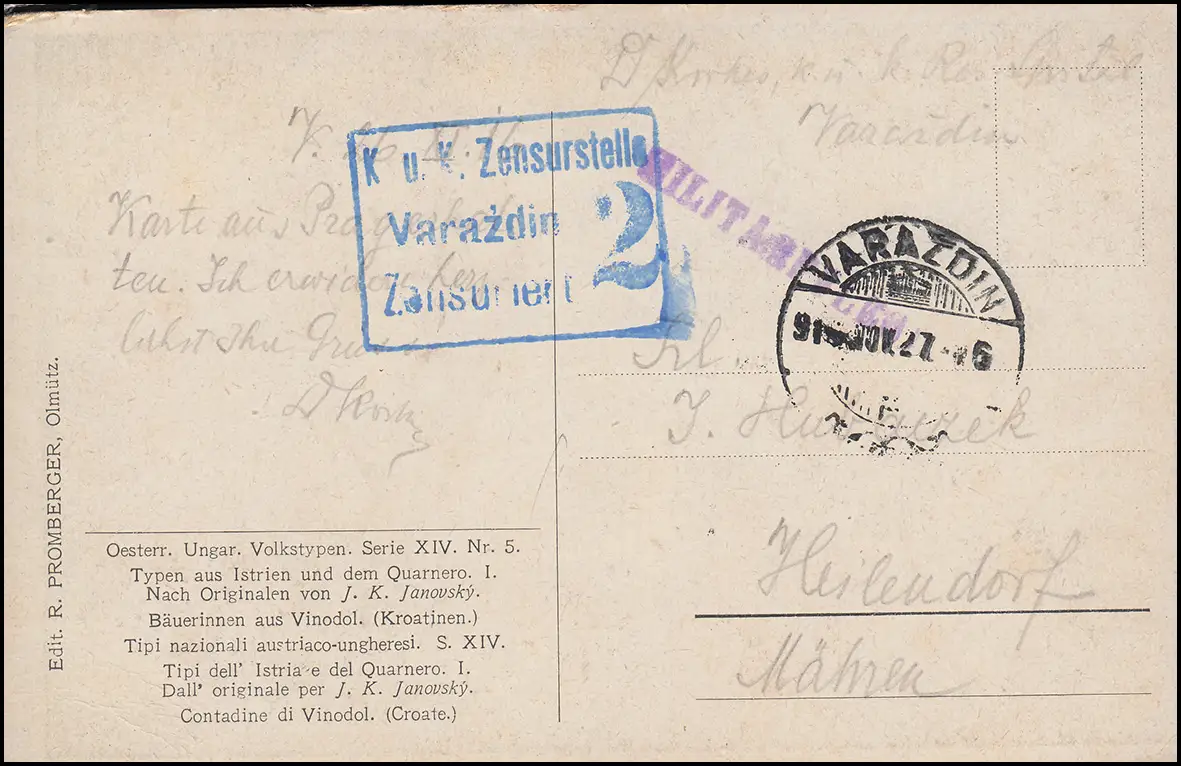 D Korkes, k. u. k. Res. Spital
Varaždin
Karte aus Prag
ten. Ich erwidere
Ihre Grüsse
K u. K. Zensurstelle
Varaždin 2
Zensuriert
MILITÄR
VARAŽDIN
916 NOV. 27. 6
Frl
J.
Heilendorf
Mähren
Edit. R. PROMBERGER, Olmütz.
Oesterr. Ungar. Volkstypen. Serie XIV. Nr. 5.
Typen aus Istrien und dem Quarnero. I.
Nach Originalen von J. K. Janovský.
Bäuerinnen aus Vinodol. (Kroatinen.)
Tipi nazionali austriaco-ungheresi. S. XIV.
Tipi dell' Istria e del Quarnero. I.
Dall' originale per J. K. Janovský.
Contadine di Vinodol. (Croate.)